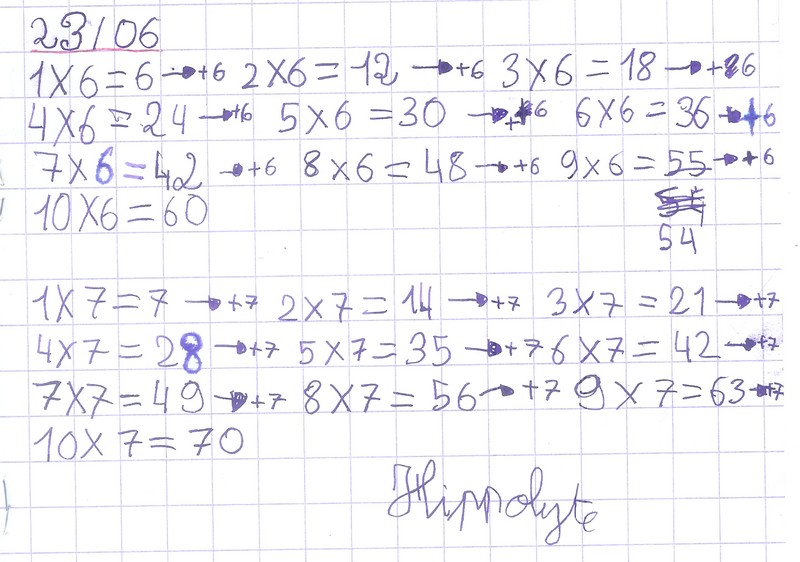 23/06
1X6=6→+6 2X6=12→+6 3X6=18→+6
4X6=24→+6 5X6=30→+6 6X6=36→+6
7X6=42→+6 8X6=48→+6 9X6=55→+6
10X6=60
54
1X7=7→+7 2X7=14→+7 3X7=21→+7
4X7=28→+7 5X7=35→+7 6X7=42→+7
7X7=49→+7 8X7=56→+7 9X7=63→+7
10X7=70
Hippolyte